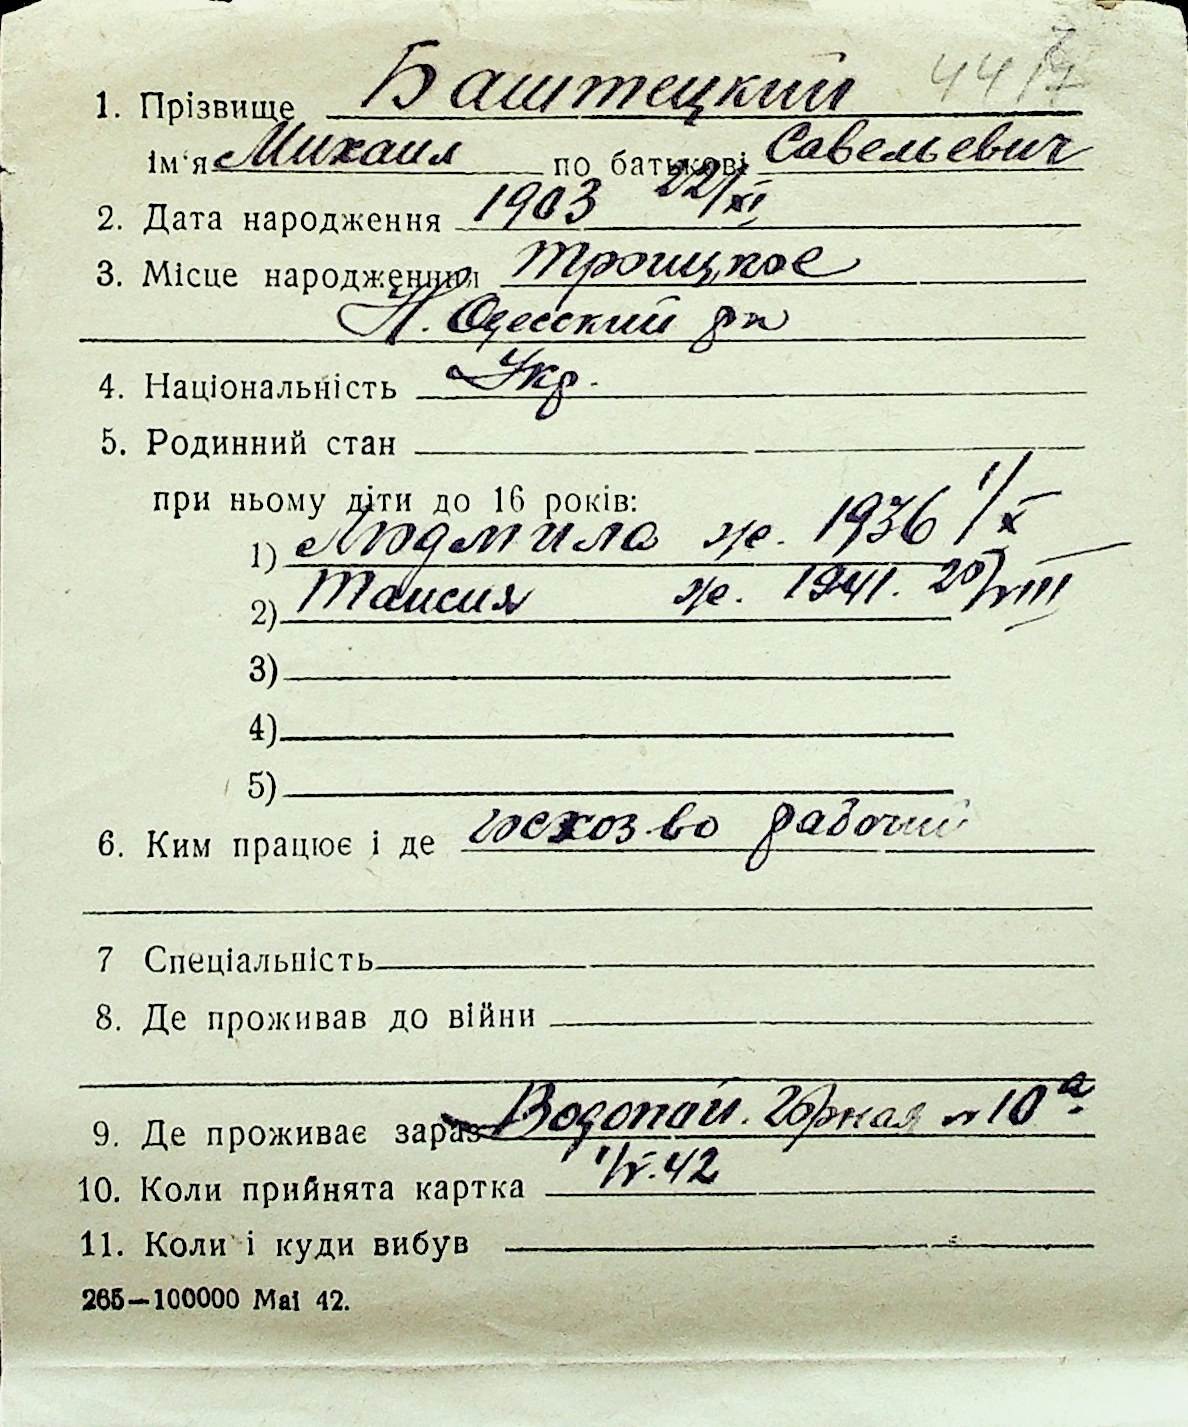 1. Прізвище Баштецкий 44
ім'я Михаил по батькові Савельевич
2. Дата народження 1903 22/XI
3. Місце народження Троицкое
Н. Одесский рн
4. Національність Укр.
5. Родинний стан
при ньому діти до 16 років:
1) Людмила же. 1936 1/X
2) Таисия же. 1941. 20/VIII
3)
4)
5)
6. Ким працює і де рабочий
7 Спеціальність
8. Де проживав до війни
9. Де проживає зараз Водопой. Горная № 10 а.
10. Коли прийнята картка 1/V.42
11. Коли і куди вибув
265—100000 Mai 42.